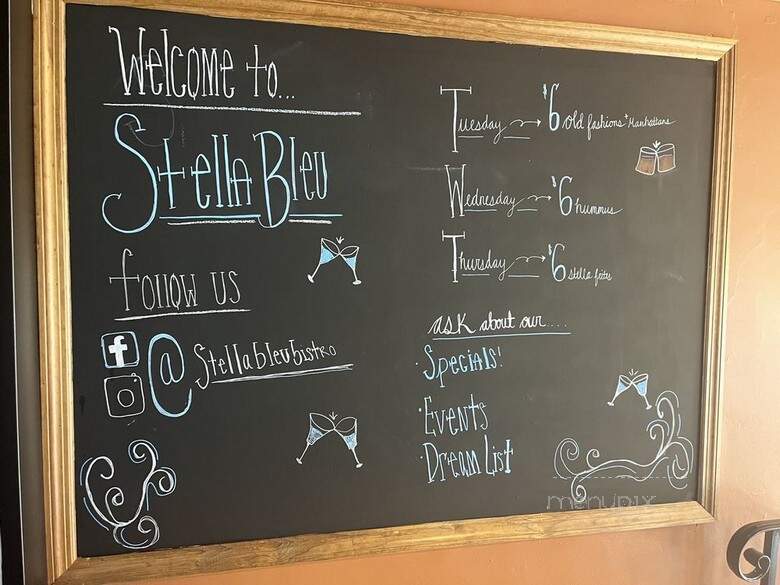 Welcome to...
Stella Bleu
follow us
f
@stellableubistro
Tuesday → $6 old fashions + Manhattans
Wednesday → $6 hummus
Thursday → $6 stella frites
ask about our....
· Specials!
· Events
· Dream List
menupix